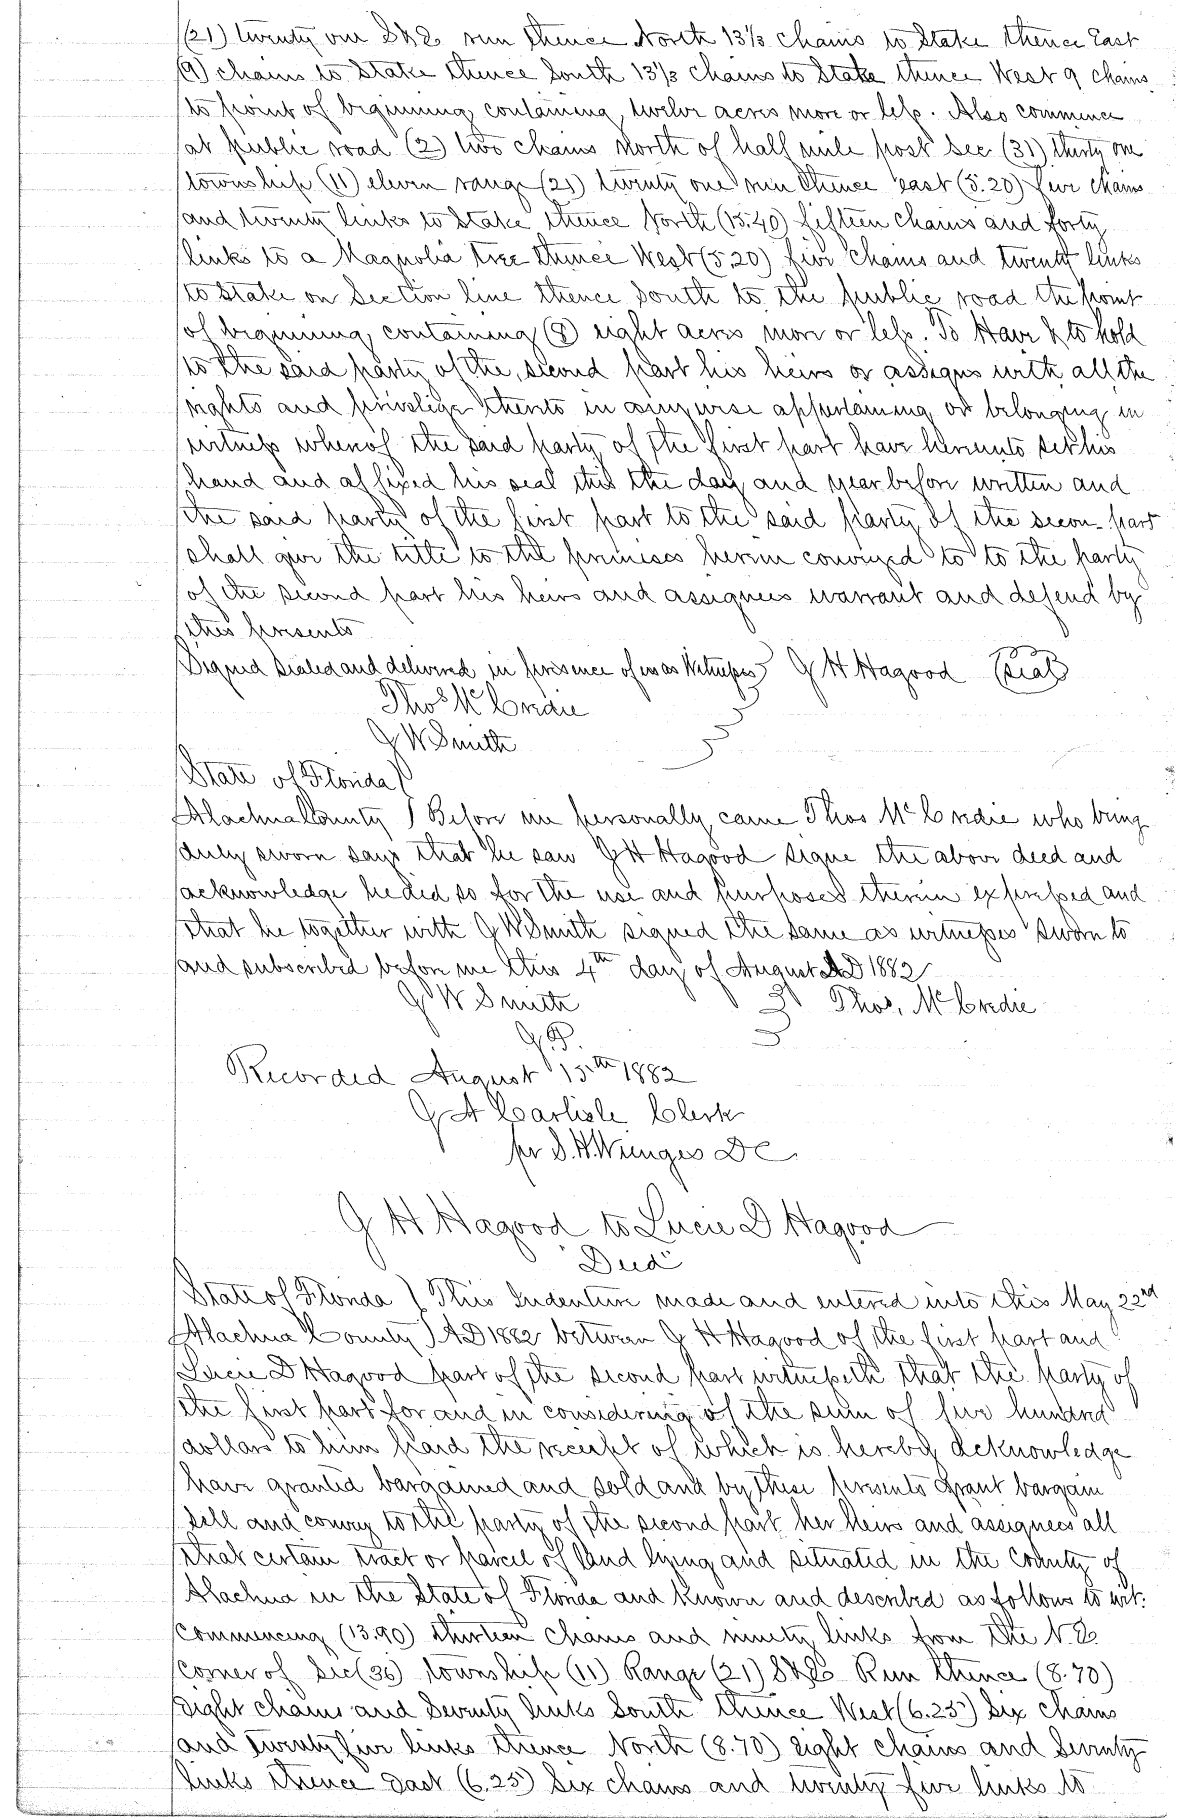 (21) twenty one S & E run thence North 13⅓ chains to Stake thence East
(9) chains to Stake thence South 13⅓ chains to Stake thence West 9 chains
to point of beginning containing twelve acres more or less. Also commence
at public road (2) two chains North of half mile post Sec (31) thirty one
township (11) eleven range (21) twenty one run thence east (5.20) five chains
and twenty links to Stake thence North (15.40) fifteen chains and forty
links to a Magnolia tree thence West (5.20) five chains and twenty links
to Stake on Section line thence South to the public road the point
of beginning containing (8) eight acres more or less. To Have & to hold
to the said party of the second part his heirs or assigns with all the
rights and privelige thereto in anywise appertaining or belonging in
witness whereof the said party of the first part have hereunto set his
hand and affixed his seal this the day and year before written and
the said party of the first part to the said party of the secon part
shall give the title to the premises herein conveyed to to the party
of the second part his heirs and assignees warrant and defend by
thes presents
Signed Sealed and delivered in presence of us as Witnesses } G H Hagood (seal)
Thos McCredie
G W Smith
State of Florida )
Alachua County ) Before me personally came Thos McCredie who being
duly sworn says that he saw G H Hagood signe the above deed and
acknowledge he did so for the use and purposes therein expressed and
that he together with G W Smith signed the same as witnesses sworn to
and subscribed before me this 4th day of August AD 1882
G W Smith } Thos. McCredie
J.P.
Recorded August 15th 1882
J A Carlisle Clerk
per S.H. Wienges DC
G H Hagood to Lucie D Hagood
"Deed"
State of Florida ) This Indenture made and entered into this May 22nd
Alachua County ) AD 1882 between G H Hagood of the first part and
Lucie D Hagood part of the second part witnesseth that the party of
the first part for and in considering of the sum of five hundred
dollars to him paid the receipt of which is hereby acknowledge
have granted bargained and sold and by these presents grant bargain
sell and convey to the party of the second part her heirs and assignees all
that certain tract or parcel of land lying and situated in the County of
Alachua in the State of Florida and known and described as follows to wit:
Commencing (13.90) thirteen chains and ninety links from the N.E.
corner of Sec (36) township (11) Range (21) S & E Run thence (8.70)
eight chains and Seventy links South thence West (6.25) Six chains
and twenty five links thence North (8.70) eight chains and Seventy
links thence East (6.25) Six chains and twenty five links to